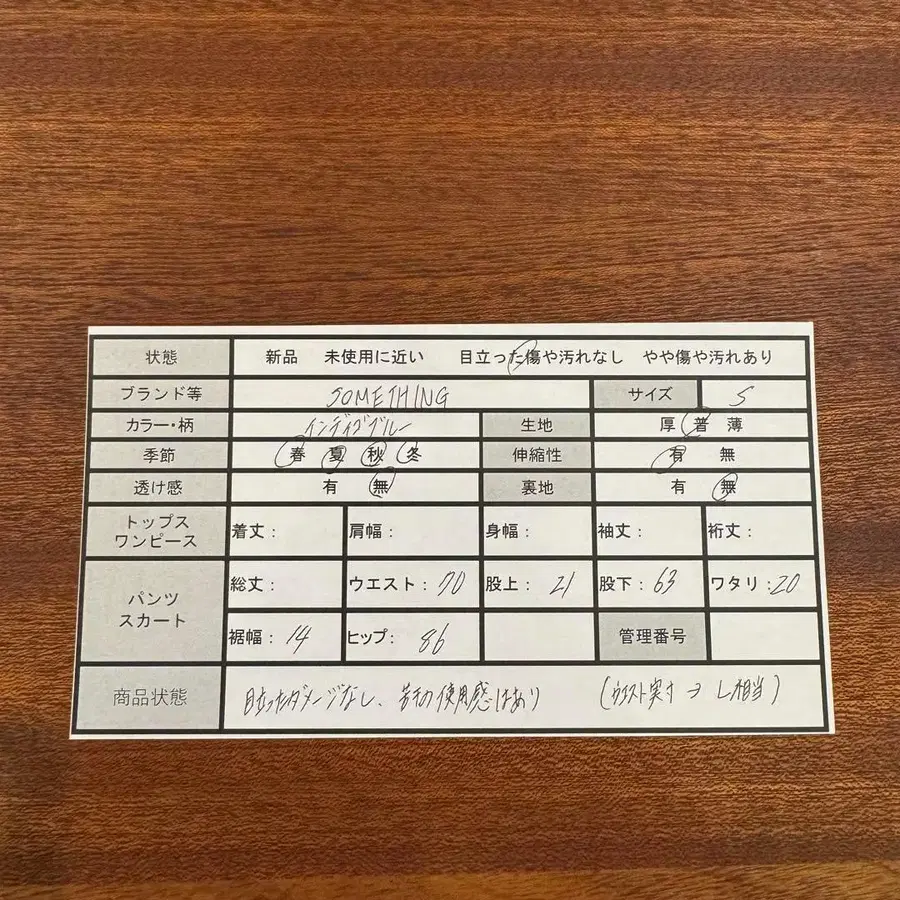 状態 新品 未使用に近い 目立った傷や汚れなし やや傷や汚れあり
ブランド等 SOMETHING サイズ S
カラー・柄 インディゴブルー 生地 厚 普 薄
季節 春 夏 秋 冬 伸縮性 有 無
透け感 有 無 裏地 有 無
トップス
ワンピース
着丈: 肩幅: 身幅: 袖丈: 裄丈:
パンツ
スカート
総丈: ウエスト: 70 股上: 21 股下: 63 ワタリ: 20
裾幅: 14 ヒップ: 86 管理番号
商品状態 目立ったダメージなし、若干の使用感はあり (ウエスト実寸→L相当)